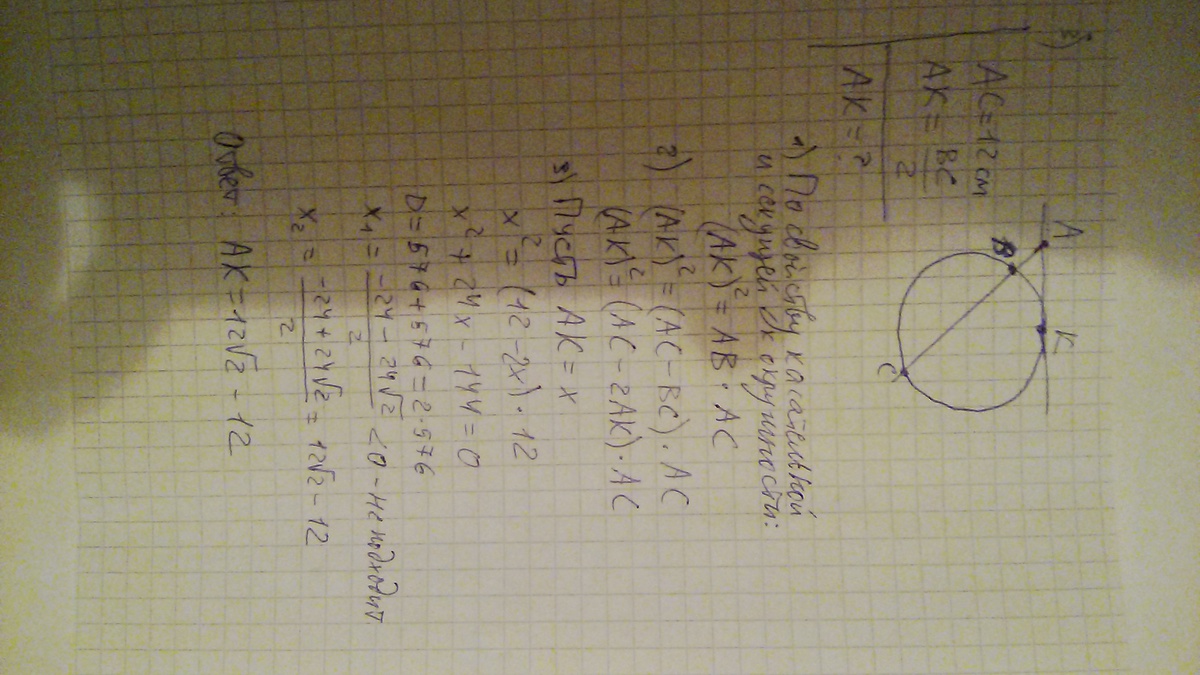 2)
AC=12 см
AK=BC/2
AK=?
A
K
B
C
1) По свойству касательной
и секущей к окружности:
(AK)²=AB·AC
2) (AK)²=(AC-BC)·AC
(AK)²=(AC-2AK)·AC
3) Пусть AK=x
x²=(12-2x)·12
x²+24x-144=0
D=576+576=2·576
x₁=(-24-24√2)/2<0-не подходит
x₂=(-24+24√2)/2=12√2-12
Ответ: AK=12√2-12